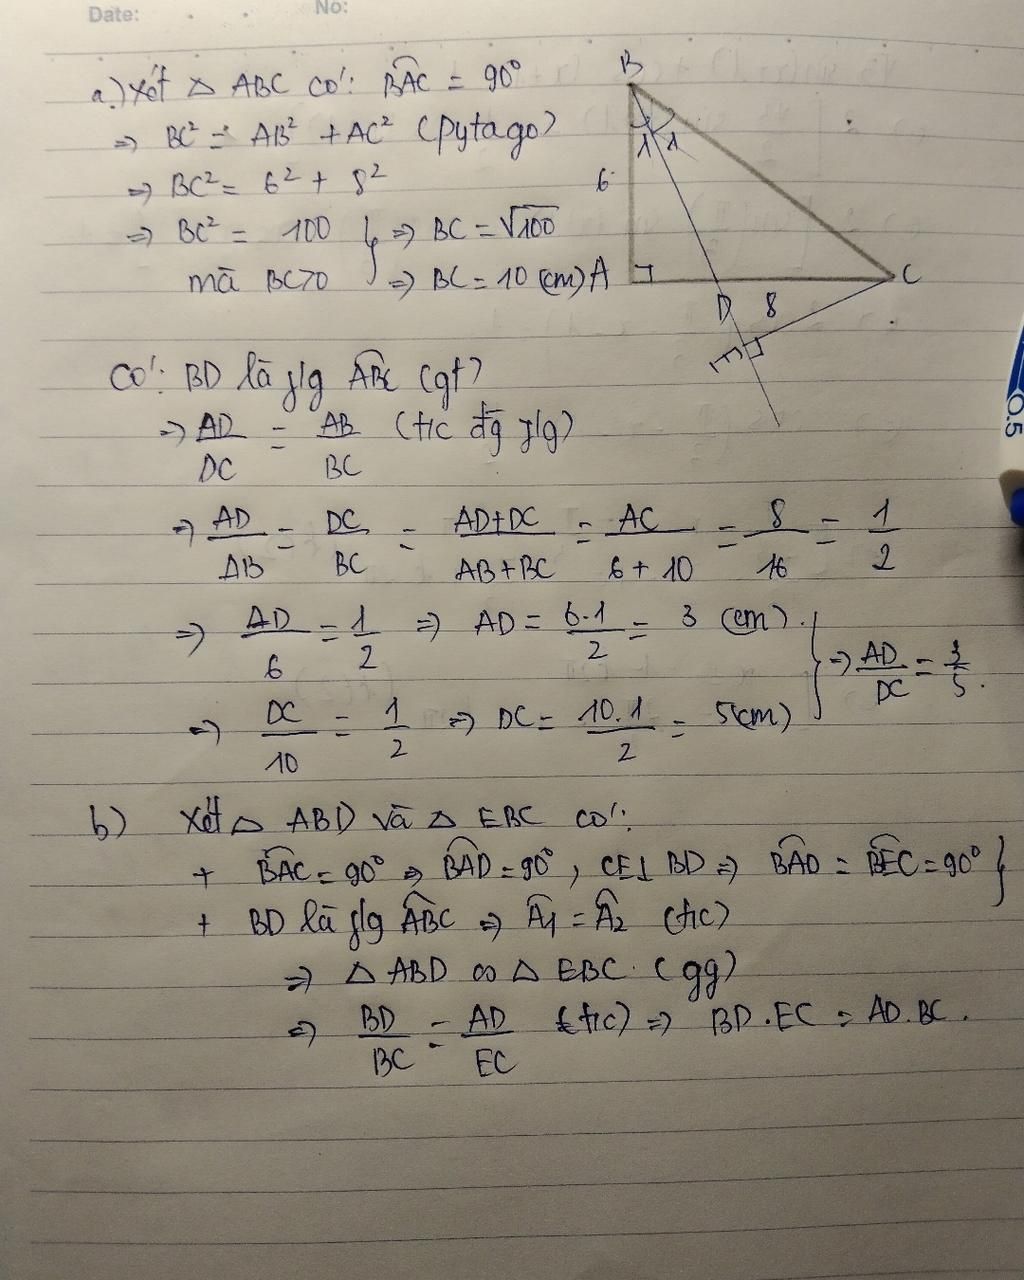 Date: . . No:
a.) Xét △ ABC có: BAC = 90°
⇒ BC² = AB² + AC² (pytago)
⇒ BC² = 6² + 8²
⇒ BC² = 100 } ⇒ BC = √100
mà BC>0 ⇒ BC = 10 (cm)
B
1 1
6
A
C
D 8
E
Có: BD là p/g ABC (gt)
⇒ AD/DC = AB/BC (t/c đg p/g)
⇒ AD/AB = DC/BC = AD+DC/AB+BC = AC/6+10 = 8/16 = 1/2
⇒ AD/6 = 1/2 ⇒ AD = 6.1/2 = 3 (cm).
} ⇒ AD/DC = 3/5.
⇒ DC/10 = 1/2 ⇒ DC = 10.1/2 = 5(cm)
b) Xét △ ABD và △ EBC có:
+ BAC = 90° ⇒ BAD = 90°, CE⊥ BD ⇒ BAD = BEC = 90° }
+ BD là p/g ABC ⇒ A1 = A2 (t/c)
⇒ △ ABD ∽ △ EBC. (gg)
⇒ BD/BC = AD/EC (t/c) ⇒ BD.EC = AD.BC.
0.5